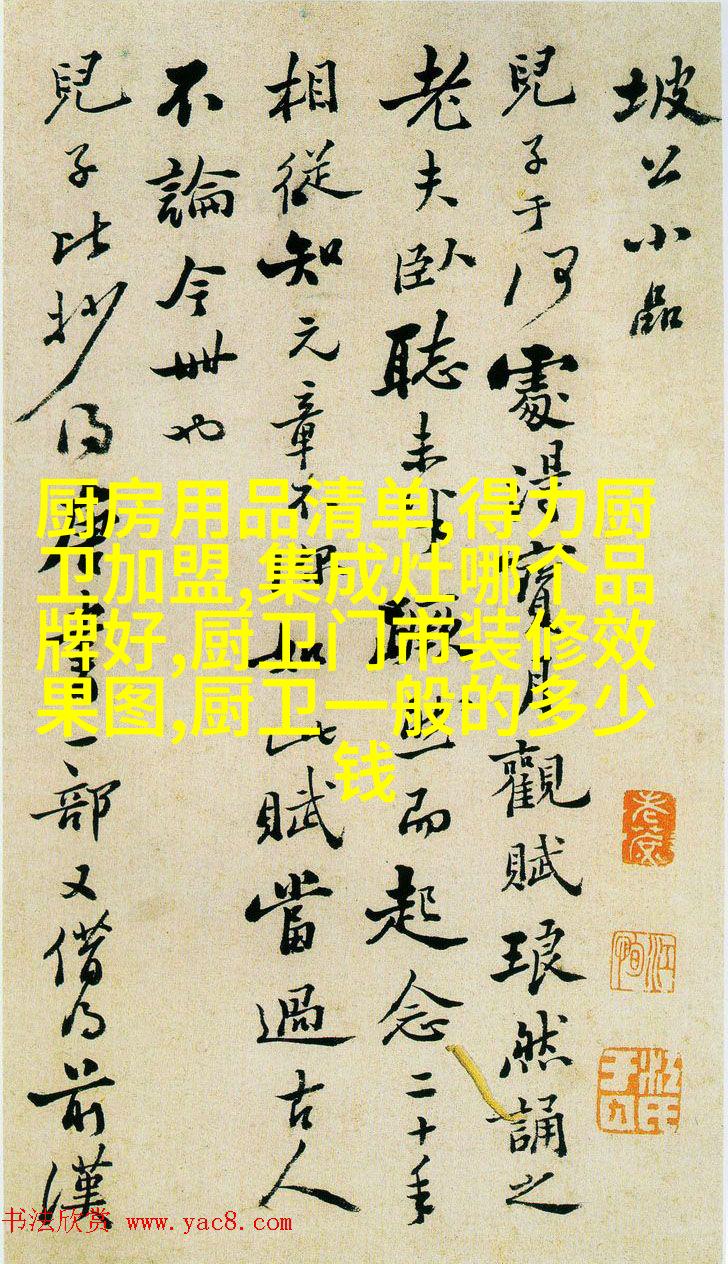 坡公小品
兒子于何處得寶月觀賦琅然誦之
老夫臥聽未半躍然而起念二十年
相從知元章不盡如此賦當過古人
不論今世也
兒子比抄得唐書一部又借得前漢
厨房用品清单,得力厨
卫加盟,集成灶哪个品
牌好,厨卫门市装修效
果图,厨卫一般的多少
钱
书法欣赏 www.yac8.com